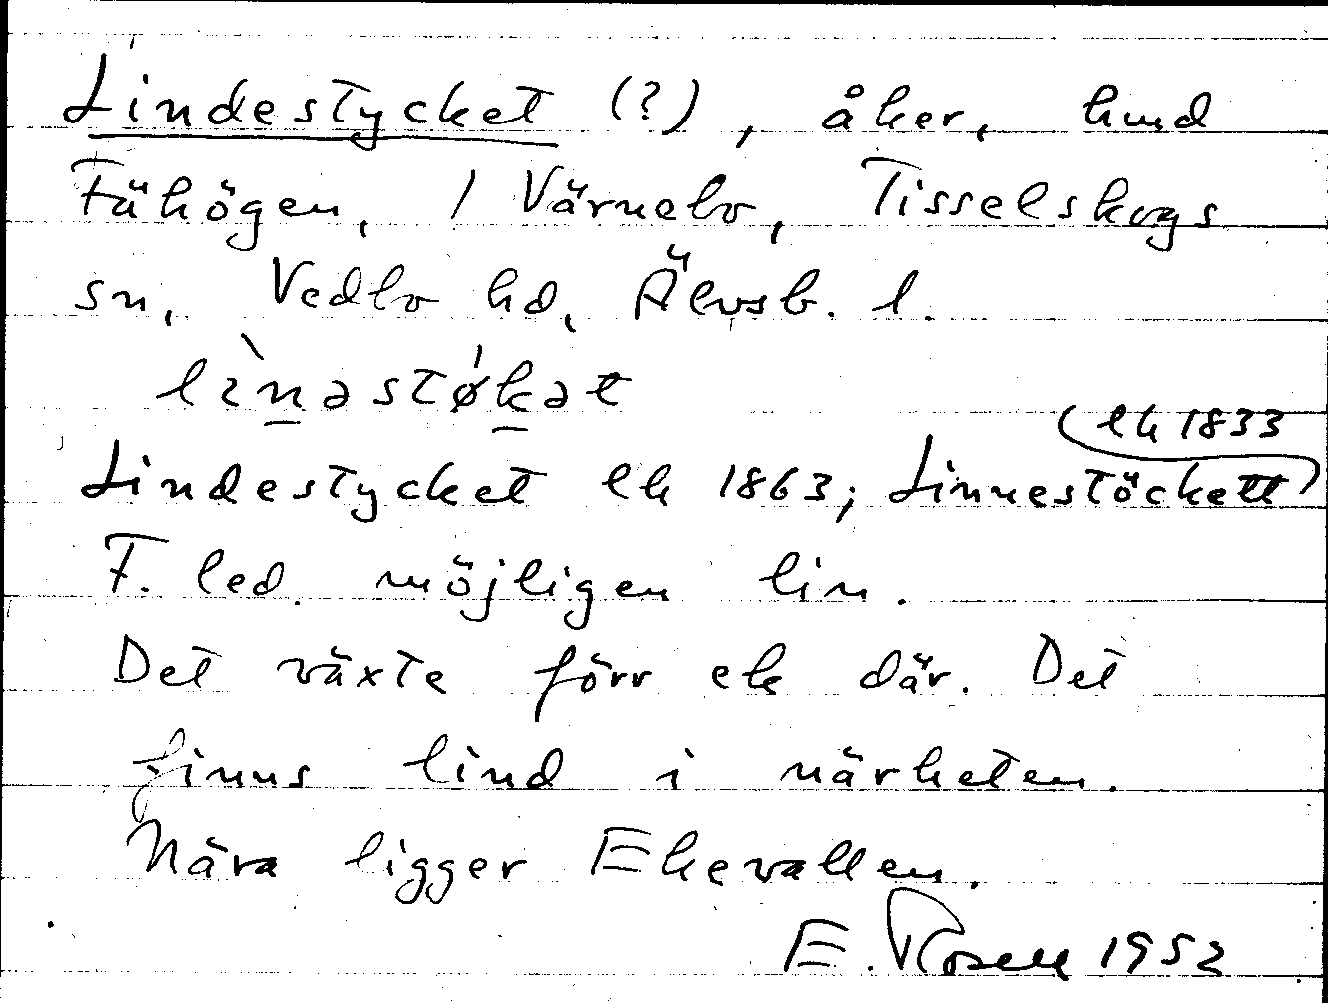 Lindestycket (?), åker, hmd
Fähögen, 1 Värnebo, Tisselskogs
sn, Vedbo hd, Älvsb. l.
lìnəstǿkət
Lindestycket lk 1863; Linnestöckett
lk 1833
F. led. möjligen lin.
Det växte förr ek där. Det
finns lind i närheten.
Nära ligger Ekevallen.
E. Rosell 1952